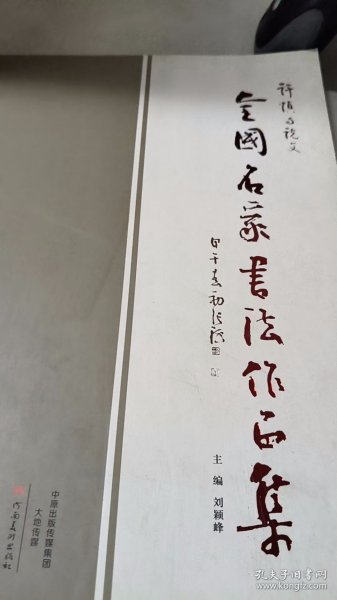 许慎与说文
全国名家书法作品集
甲午春初张海
主编 刘颖峰
中原出版传媒集团
大地传媒
河南美术出版社
孔夫子旧书网